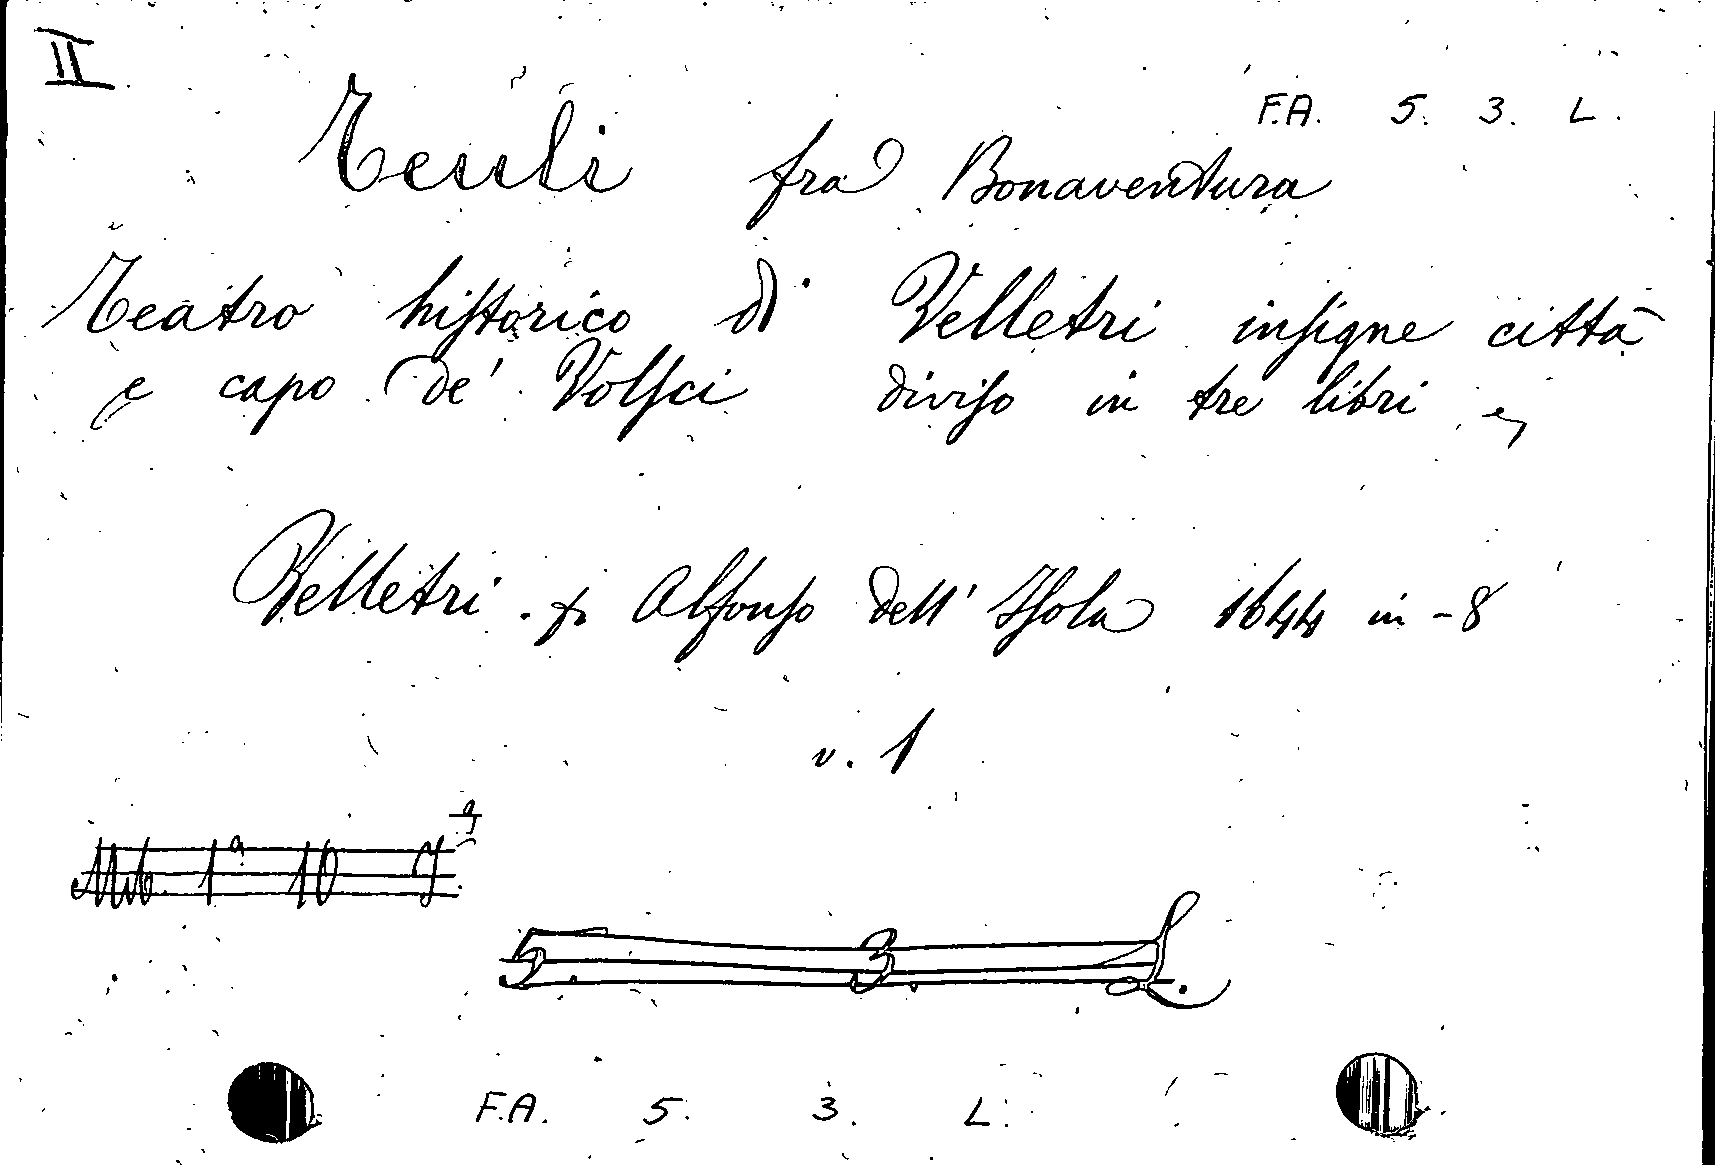 II
F.A. 5. 3. L.
Teuli fra Bonaventura
Teatro hiſtorico di Velletri inſigne città
e capo de' Volſci diviſo in tre libri
Velletri. Alfonſo dell' Iſola 1644 in-8
v. 1
1ª 10
5. 3. L.
F.A. 5. 3. L.